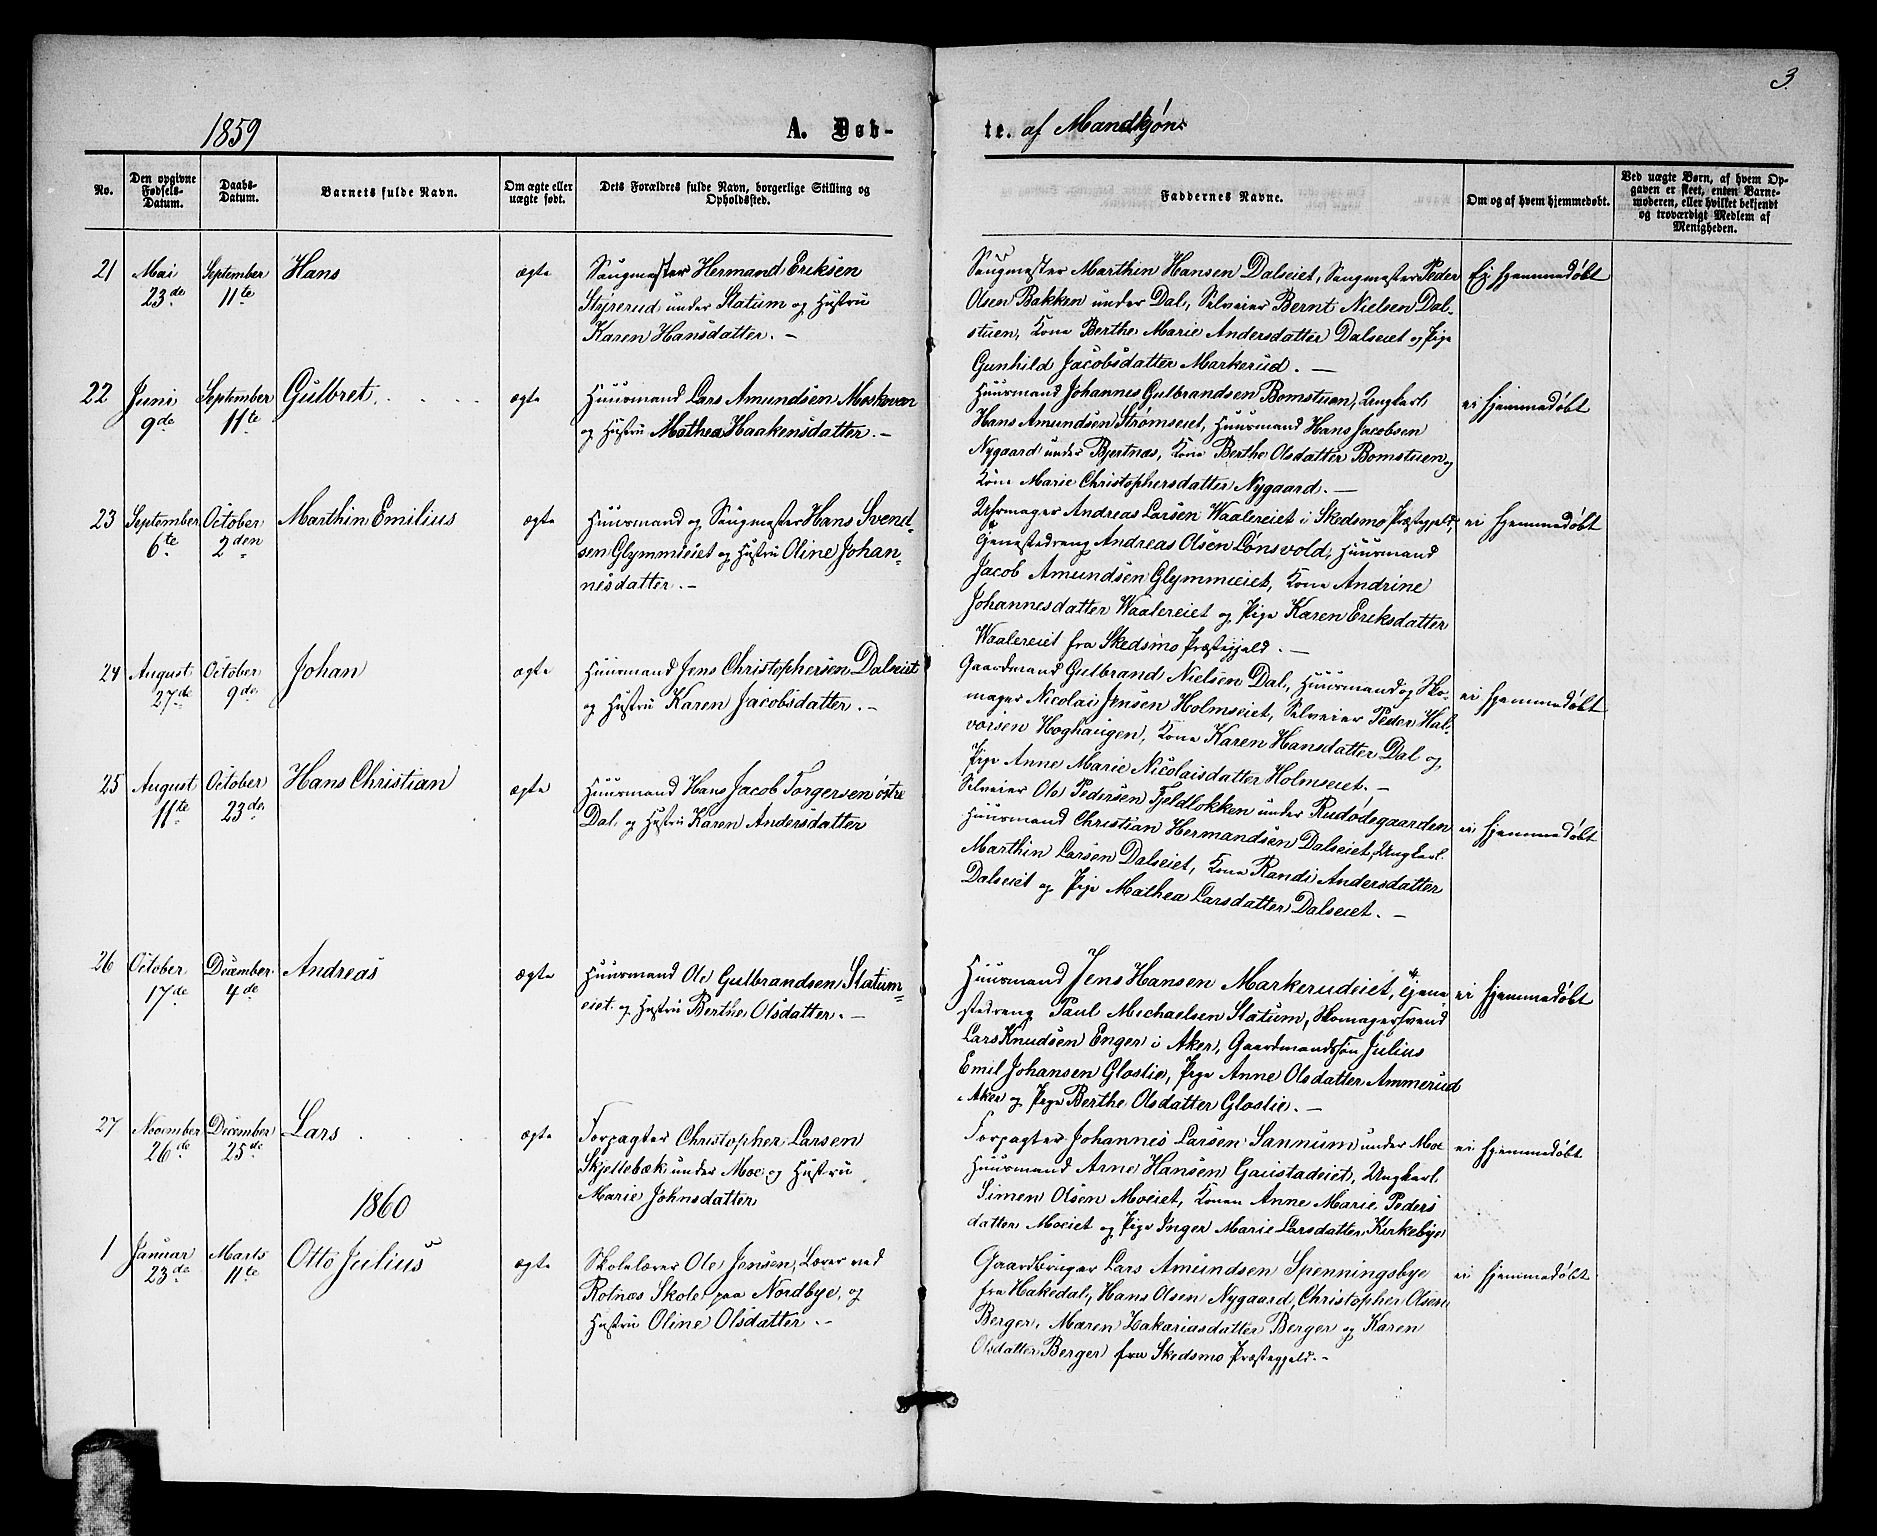 3.
1859
A. Døb-
te. af Mandkjøn.
No.
Den opgivne Fødsels-Datum.
Daabs-Datum.
Barnets fulde Navn.
Om ægte eller uægte født.
Dets Forældres fulde Navn, borgerlige Stilling og Opholdssted.
Faddernes Navne.
Om og af hvem hjemmedøbt.
Ved uægte Børn, af hvem Opgaven er skeet, enten Barnemoderen, eller hvilket bekjendt og troværdigt Medlem af Menigheden.
21 Mai 23de September 11te Hans ægte
Saugmester Hermand Eriksen
Styrerud under Slatum og Hustru
Karen Hansdatter. —
Saugmester Marthin Hansen Dalseiet, Saugmester Peder
Olsen Bakken under Dal, Selveier Bernt Nielsen Dal-
stuen, Kone Berthe Marie Andersdatter Dalseiet og Pige
Gunhild Jacobsdatter Markerud. —
Ej hjemmedøbt
22 Juni 9de September 11te Gulbret ægte
Huusmand Lars Amundsen Moskoven
og Hustru Mathea Haakensdatter. —
Huusmand Johannes Gulbrandsen Bomstuen, Ungkarl
Hans Amundsen Strømseiet, Huusmand Hans Jacobsen
Nygaard under Bjertnæs, Kone Berthe Olsdatter Bomstuen og
Kone Marie Christophersdatter Nygaard. —
ei hjemmedøbt
23 September 6te October 2den Marthin Emilius ægte
Huusmand og Saugmester Hans Svend-
sen Glymmeiet og Hustru Oline Johan-
nesdatter. —
Uhrmager Andreas Larsen Waalereiet i Skedsmo Præstegjeld,
Tjenestedreng Andreas Olsen Lønsvold, Huusmand
Jacob Amundsen Glymmeiet, Kone Andrine
Johannesdatter Waalereiet og Pige Karen Eriksdatter
Waalereiet fra Skedsmo Præstegjeld. —
ei hjemmedøbt
24 August 27de October 9de Johan ægte
Huusmand Jens Christophersen Dalseiet
og Hustru Karen Jacobsdatter. —
Gaardmand Gulbrand Nielsen Dal, Huusmand og Sko-
mager Nicolai Jensen Holmseiet, Selveier Peder Hal-
vorsen Hoghaugen, Kone Karen Hansdatter Dal og
Pige Anne Marie Nicolaisdatter Holmseiet. —
ei hjemmedøbt
25 August 11te October 23de Hans Christian ægte
Huusmand Hans Jacob Torgersen østre
Dal, og Hustru Karen Andersdatter
Selveier Ole Pedersen Fjeldlokken under Rudødegaarden
Huusmand Christian Hermandsen Dalseiet, Ungkarl
Marthin Larsen Dalseiet, Kone Randi Andersdatter
Dalseiet og Pige Mathea Larsdatter Dalseiet. —
ei hjemmedøbt
26 October 17de December 4de Andreas ægte
Huusmand Ole Gulbrandsen Slatum-
eiet og Hustru Berthe Olsdatter. —
Huusmand Jens Hansen Markerudeiet, Tjene-
stedreng Paul Michaelsen Slatum, Skomagersvend
Lars Knudsen Enger i Aker, Gaardmandssøn Julius
Emil Johansen Gloslie, Pige Anne Olsdatter Ammerud
i Aker og Pige Berthe Olsdatter Gloslie. —
ei hjemmedøbt
27 November 26de December 25de Lars ægte
Forpagter Christopher Larsen
Skjellebæk under Moe og Hustru
Marie Johnsdatter
Forpagter Johannes Larsen Sannum under Moe
Huusmand Arne Hansen Gaustadeiet, Ungkarl
Simen Olsen Moeiet, Konen Anne Marie Peders
datter Moeiet og Pige Inger Marie Larsdatter Kirkebye
ei hjemmedøbt
1860
1 Januar 23de Marts 11te Otto Julius ægte
Skolelærer Ole Jensen, Lærer ved
Rolnæs Skole paa Nordbye, og
Hustru Oline Olsdatter. —
Gaardbruger Lars Amundsen Spenningsbye
fra Hakedal, Hans Olsen Nygaard, Christopher Olsen
Berger, Maren Zakariasdatter Berger og Karen
Olsdatter Berger fra Skedsmo Præstegjeld. —
ei hjemmedøbt